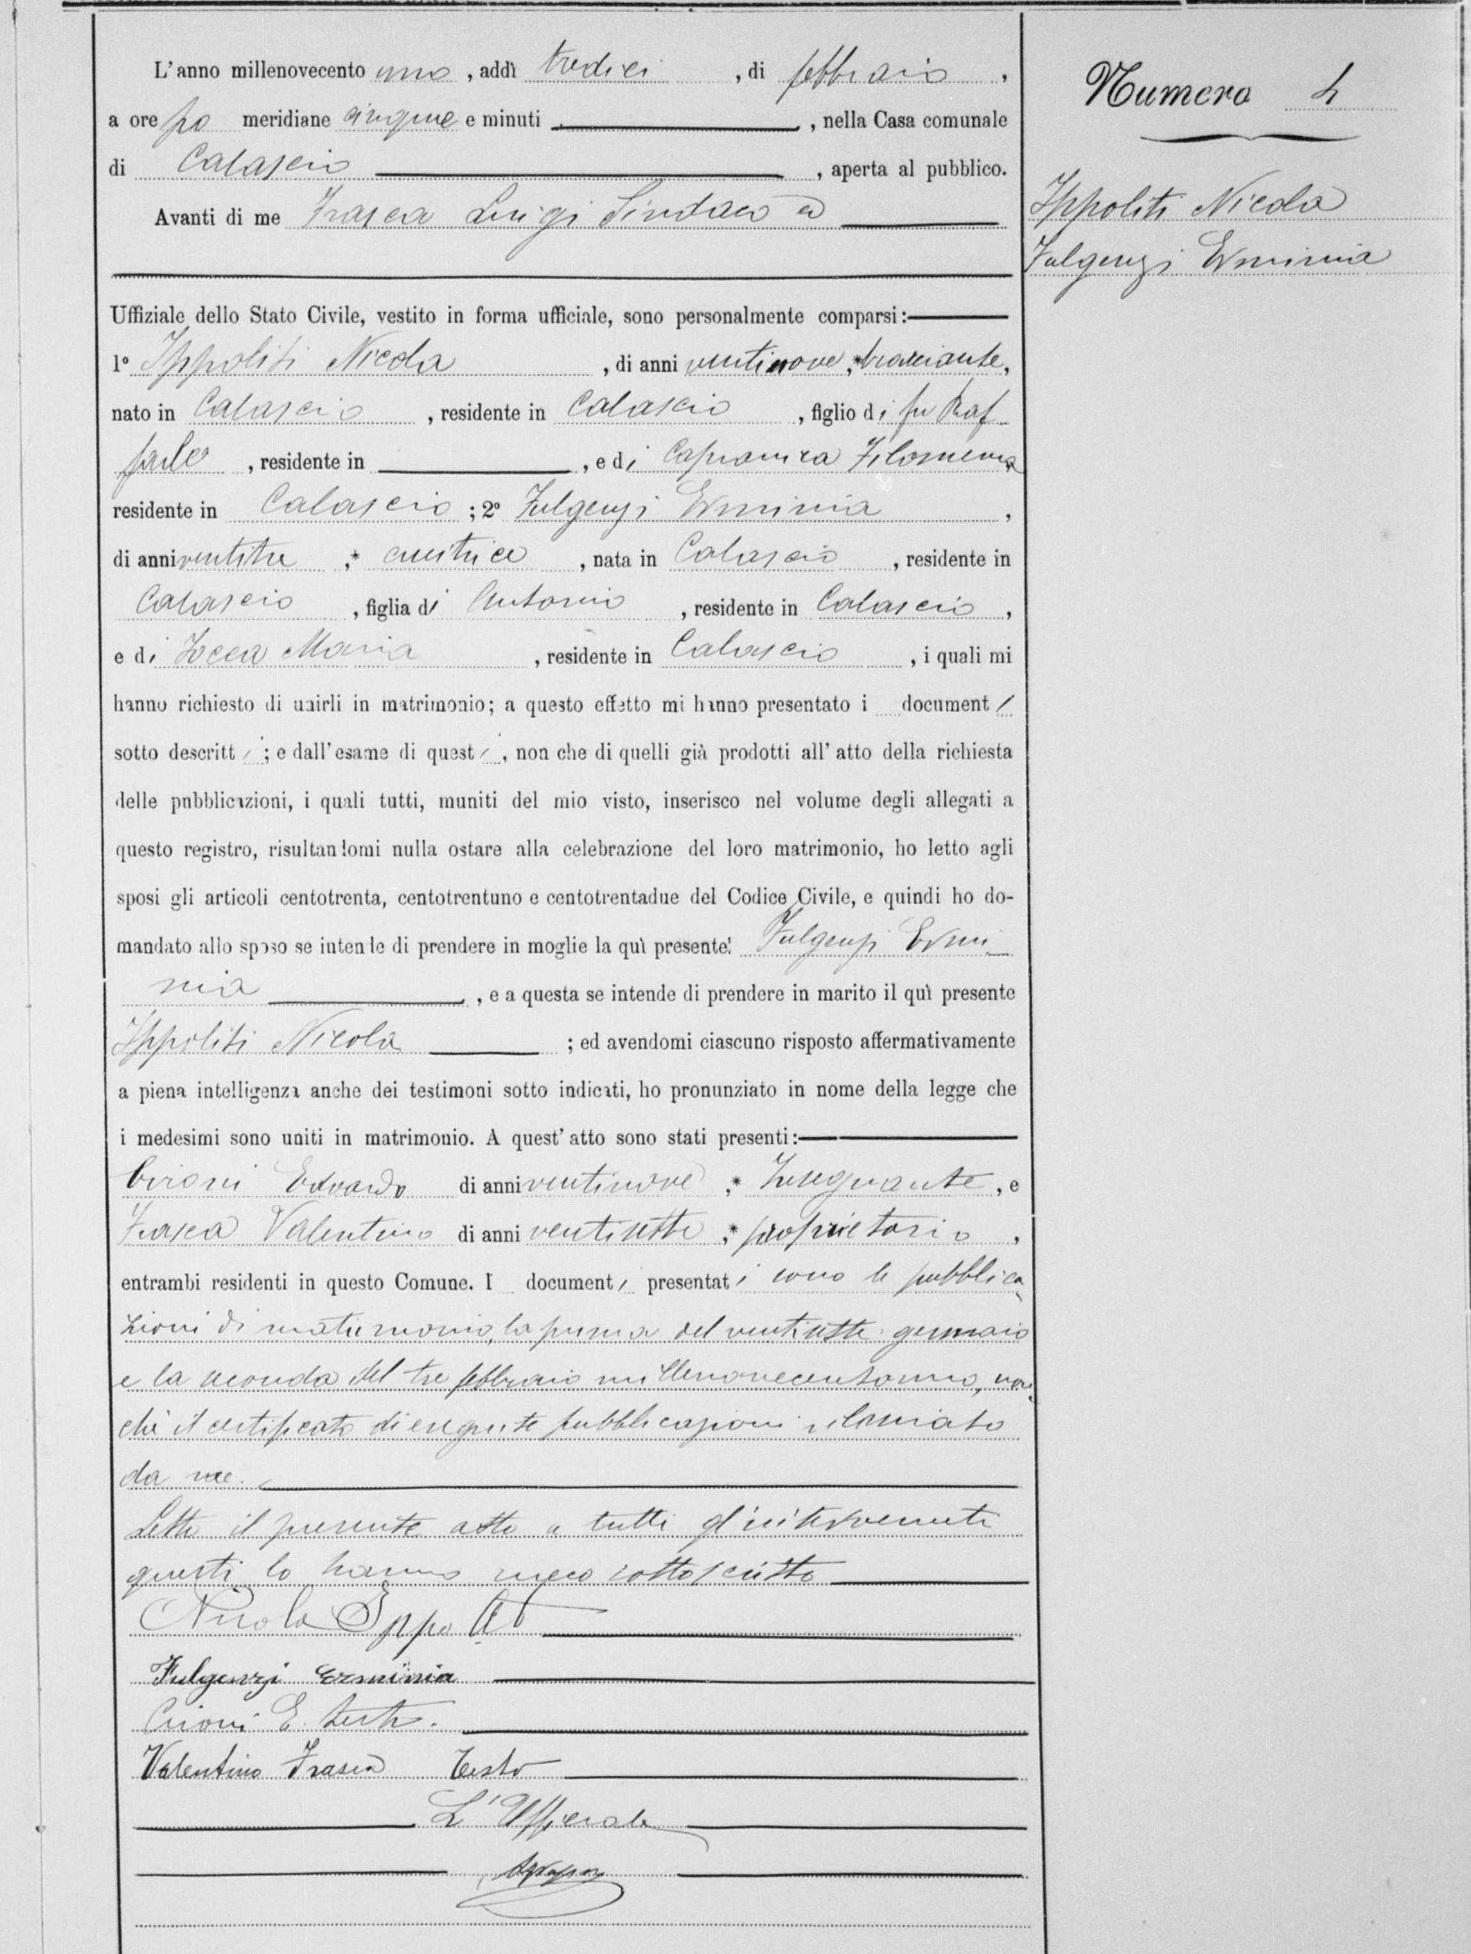 L'anno millenovecento uno, addì tredici, di febbraio,
a ore po meridiane cinque e minuti, nella Casa comunale
di Calascio, aperta al pubblico.
Avanti di me Frasca Luigi Sindaco ed
Numero 4
Ippoliti Nicola
Fulgenzi Erminia
Uffiziale dello Stato Civile, vestito in forma ufficiale, sono personalmente comparsi:
1° Ippoliti Nicola, di anni ventinove, * bracciante,
nato in Calascio, residente in Calascio, figlio di fu Raf
faele, residente in, e di Capranica Filomena
residente in Calascio; 2° Fulgenzi Erminia,
di anni ventitre, * cucitrice, nata in Calascio, residente in
Calascio, figlia di Antonio, residente in Calascio,
e di Zocca Maria, residente in Calascio, i quali mi
hanno richiesto di unirli in matrimonio; a questo effetto mi hanno presentato i documenti
sotto descritti; e dall'esame di questi, non che di quelli già prodotti all'atto della richiesta
delle pubblicazioni, i quali tutti, muniti del mio visto, inserisco nel volume degli allegati a
questo registro, risultandomi nulla ostare alla celebrazione del loro matrimonio, ho letto agli
sposi gli articoli centotrenta, centotrentuno e centotrentadue del Codice Civile, e quindi ho do-
mandato allo sposo se intende di prendere in moglie la quì presente: Fulgenzi Ermi-
nia, e a questa se intende di prendere in marito il quì presente
Ippoliti Nicola; ed avendomi ciascuno risposto affermativamente
a piena intelligenza anche dei testimoni sotto indicati, ho pronunziato in nome della legge che
i medesimi sono uniti in matrimonio. A quest'atto sono stati presenti:
Cirioni Edoardo di anni ventinove, * Insegnante, e
Frasca Valentino di anni ventisette, * proprietario,
entrambi residenti in questo Comune. I documenti presentati sono le pubblica
zioni di matrimonio, la prima del ventisette gennaio
e la seconda del tre febbraio millenovecentouno, non
chè il certificato di eseguite pubblicazioni rilasciato
da me.
Letto il presente atto a tutti gl'intervenuti
questi lo hanno meco sottoscritto
Nicola Ippoliti
Fulgenzi Erminia
Cirioni E. teste.
Valentino Frasca Teste
L'Uffiziale